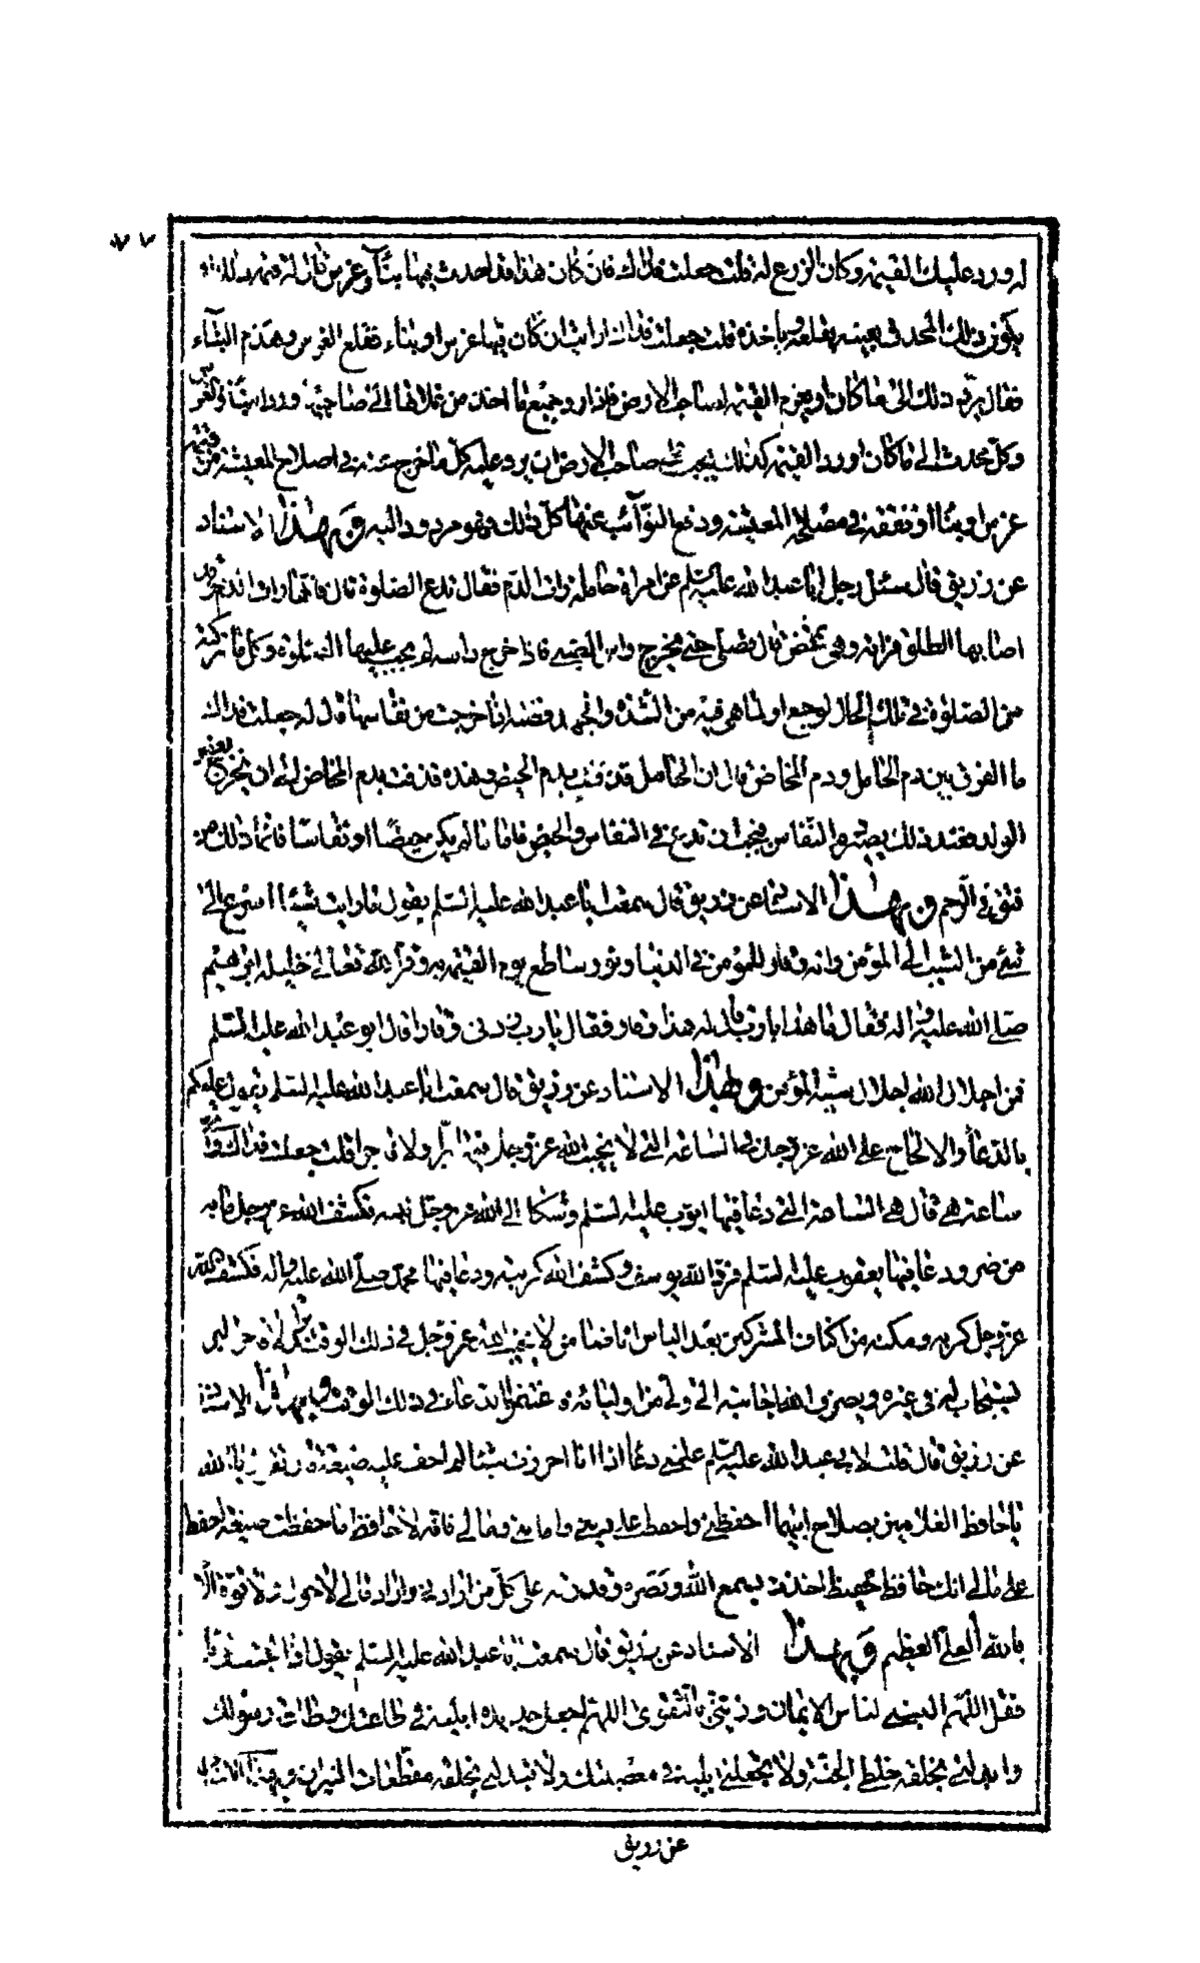 له ورد عليك القيمة وكان الزرع له قلت جعلت فداك فان كان هذا قد احدث فيها بناء وغرس قال له قيمة ذلك او
يكون ذلك المحدث بعينه يقلعه وياخذه قلت جعلت فداك ارايت ان كان فيها غرس او بناء فقلع الغرس وهدم البناء
فقال يرد ذلك الى ما كان او يغرم القيمة لصاحب الارض فاذا رد جميع ما اخذ من غلاتها الى صاحبها ورد البناء والغرس
وكل محدث الى ما كان او رد القيمة كذلك يجب على صاحب الارض ان يرد عليه كل ما خرج عنه في اصلاح المعيشة من قيمة
غرس او بناء او نفقة في مصلحة المعيشة ودفع النوائب عنها كل ذلك فهو مردود اليه وبهذا الاسناد
عن زريق قال سئل رجل ابا عبد الله عليه السلم عن امراة حاملة رات الدم فقال تدع الصلوة قال فانها رات الدم وقد
اصابها الطلق فراته وهي تمخض قال تصلي حتى يخرج راس الصبي فاذا خرج راسه لم يجب عليها الصلوة وكل ما تركته
من الصلوة في تلك الحال لوجع او لما هي فيه من الشدة والجهد قضته اذا خرجت من نفاسها قال له جعلت فداك
ما الفرق بين دم الحامل ودم المخاض قال ان الحامل قذفت بدم الحيض وهذه قذفت بدم المخاض الى ان يخرج بعض
الولد فعند ذلك يصير دم النفاس فيجب ان تدع في النفاس والحيض فاما ما لم يكن حيضا او نفاسا فانما ذلك من
فتق في الرحم وبهذا الاسناد عن زريق قال سمعت ابا عبد الله عليه السلم يقول ما رايت شيئا اسرع الى
شيء من الشيب الى المؤمن وانه وقار للمؤمن في الدنيا ونور ساطع يوم القيمة به وقر الله تعالى خليله ابرهيم
صلى الله عليه واله فقال ما هذا يا رب قال له هذا وقار فقال يا رب زدني وقارا قال ابو عبد الله عليه السلم
فمن اجلال الله اجلال شيبة المؤمن وبهذا الاسناد عن زريق قال سمعت ابا عبد الله عليه السلم يقول عليكم
بالدعاء والالحاح على الله عز وجل في الساعة التي لا يخيب الله عز وجل فيها برا ولا فاجرا قلت جعلت فداك واية
ساعة هي قال هي الساعة التي دعا فيها ايوب عليه السلم وشكا الى الله عز وجل بليته فكشف الله عز وجل ما به
من ضر ودعا فيها يعقوب عليه السلم فرد الله يوسف وكشف الله كربته ودعا فيها محمد صلى الله عليه واله فكشف الله
عز وجل كربه ومكنه من اكتاف المشركين بعد الياس انا ضامن لا يخيب الله عز وجل في ذلك الوقت برا ولا فاجرا البر
يستجاب له في نفسه وغيره ويصرف الله اجابته الى ولي من اوليائه فاغتنموا الدعاء في ذلك الوقت وبهذا الاسناد
عن زريق قال قلت لابي عبد الله عليه السلم علمني دعاء اذا انا احرزت شيئا لم اخف عليه ضيعة قال تقول يا الله
يا حافظ الغلامين بصلاح ابيهما احفظني واحفظ علي ديني وامانتي ومالي فانه لا حافظ ما حفظت ضيعة احفظ
علي مالي انك حافظ حفيظ اخذت بسمع الله وبصره وقدرته على كل من ارادني واراد مالي لا حول ولا قوة الا
بالله العلي العظيم وبهذا الاسناد عن زريق قال سمعت ابا عبد الله عليه السلم يقول
فقل اللهم البسني لباس الايمان وزيني بالتقوى اللهم اجعل جديده ابليه في طاعتك وطاعة رسولك
وابدلني بخلقه حلل الجنة ولا تجعلني ابليه في معصيتك ولا تبدلني بخلقه مقطعات النيران وبهذا الاسناد
عن زريق